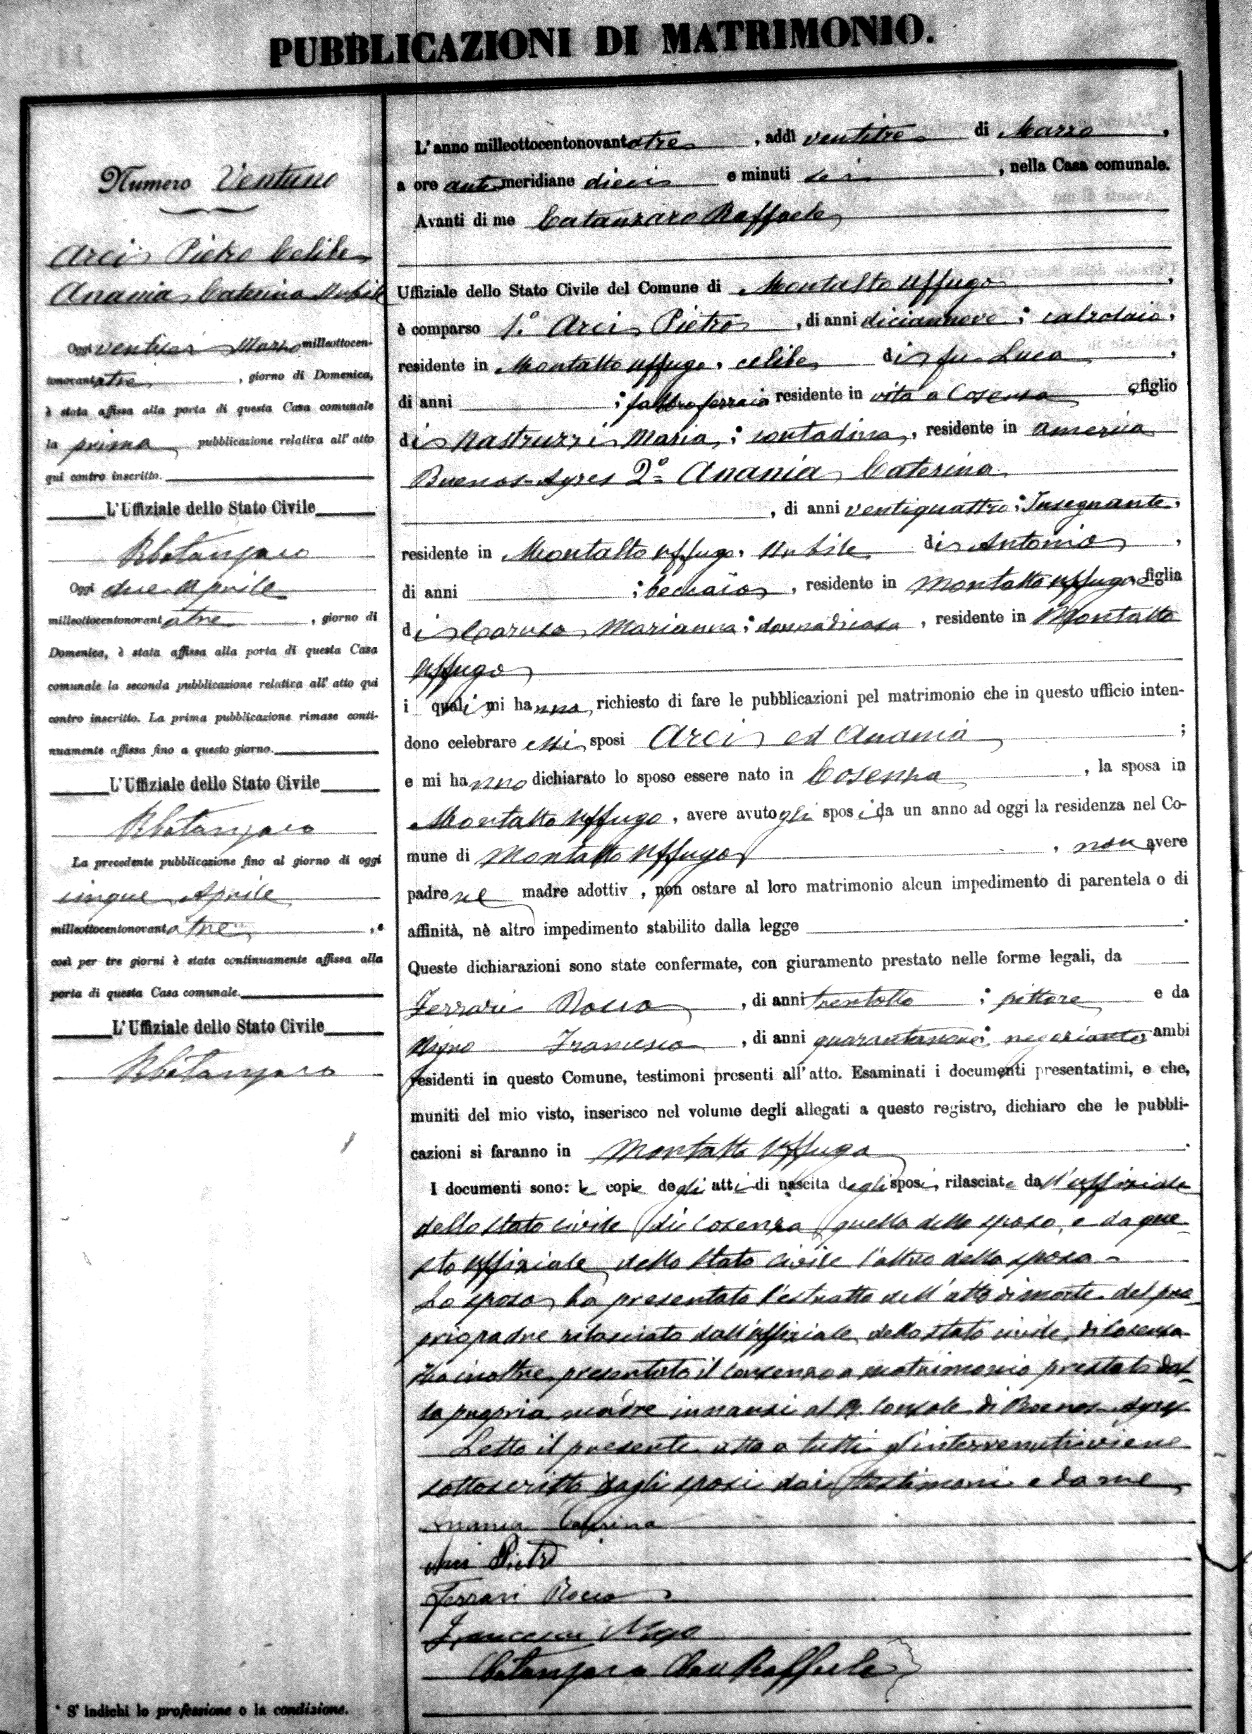 PUBBLICAZIONI DI MATRIMONIO.
Numero Ventuno
Arci Pietro Celibe
Anania Caterina Nubile
Oggi ventisei Marzo milleottocen-
tonovantatre, giorno di Domenica,
è stata affissa alla porta di questa Casa comunale
la prima pubblicazione relativa all' atto
qui contro inscritto.
L'Uffiziale dello Stato Civile
RCatanzaro
Oggi due Aprile
milleottocentonovantatre, giorno di
Domenica, è stata affissa alla porta di questa Casa
comunale la seconda pubblicazione relativa all' atto qui
contro inscritto. La prima pubblicazione rimase conti-
nuamente affissa fino a questo giorno.
L'Uffiziale dello Stato Civile
RCatanzaro
La precedente pubblicazione fino al giorno di oggi
cinque Aprile
milleottocentonovantatre, e
così per tre giorni è stata continuamente affissa alla
porta di questa Casa comunale.
L'Uffiziale dello Stato Civile
RCatanzaro
* S' indichi lo professione o la condizione.
L'anno milleottocentonovantatre, addì ventitre di Marzo,
a ore antemeridiane dieci e minuti sei, nella Casa comunale.
Avanti di me Catanzaro Raffaele
Uffiziale dello Stato Civile del Comune di Montalto Uffugo,
è comparso 1.° Arci Pietro, di anni diciannove; calzolaio,
residente in Montalto Uffugo, celibe di fu Luca,
di anni ; fabbro ferraio residente in vita a Cosenza, figlio
di Nastruzzi Maria; contadina, residente in America
Buenos-Ayres 2° Anania Caterina
, di anni ventiquattro; Insegnante,
residente in Montalto Uffugo, Nubile di Antonio,
di anni ; beccaio, residente in Montalto Uffugo figlia
di Caruso Marianna; donnadicasa, residente in Montalto
Uffugo
i quali mi hanno richiesto di fare le pubblicazioni pel matrimonio che in questo ufficio inten-
dono celebrare essi sposi Arci ed Anania;
e mi hanno dichiarato lo sposo essere nato in Cosenza, la sposa in
Montalto Uffugo, avere avuto gli sposi da un anno ad oggi la residenza nel Co-
mune di Montalto Uffugo, non avere
padre nè madre adottiv , non ostare al loro matrimonio alcun impedimento di parentela o di
affinità, nè altro impedimento stabilito dalla legge.
Queste dichiarazioni sono state confermate, con giuramento prestato nelle forme legali, da
Ferrari Rocco, di anni trentotto; pittore e da
Nigro Francesco, di anni quarantanove; negoziante, ambi
residenti in questo Comune, testimoni presenti all'atto. Esaminati i documenti presentatimi, e che,
muniti del mio visto, inserisco nel volume degli allegati a questo registro, dichiaro che le pubbli-
cazioni si faranno in Montalto Uffugo.
I documenti sono: le copie degli atti di nascita degli sposi, rilasciate dall'uffiziale
dello stato civile di Cosenza quella dello sposo, e da que-
sto uffiziale dello stato civile l'altra della sposa.
Lo sposo ha presentato l'estratto dell'atto di morte del pro-
prio padre rilasciato dall'uffiziale dello stato civile di Cosenza
Ha inoltre presentato il consenso a matrimonio prestato dal-
la propria madre innanzi al R. Console di Buenos-Ayres
Letto il presente atto a tutti gl'intervenuti viene
sottoscritto dagli sposi dai testimoni e da me
Anania Caterina
Arci Pietro
Ferrari Rocco
Francesco Nigro
Catanzaro Raffaele